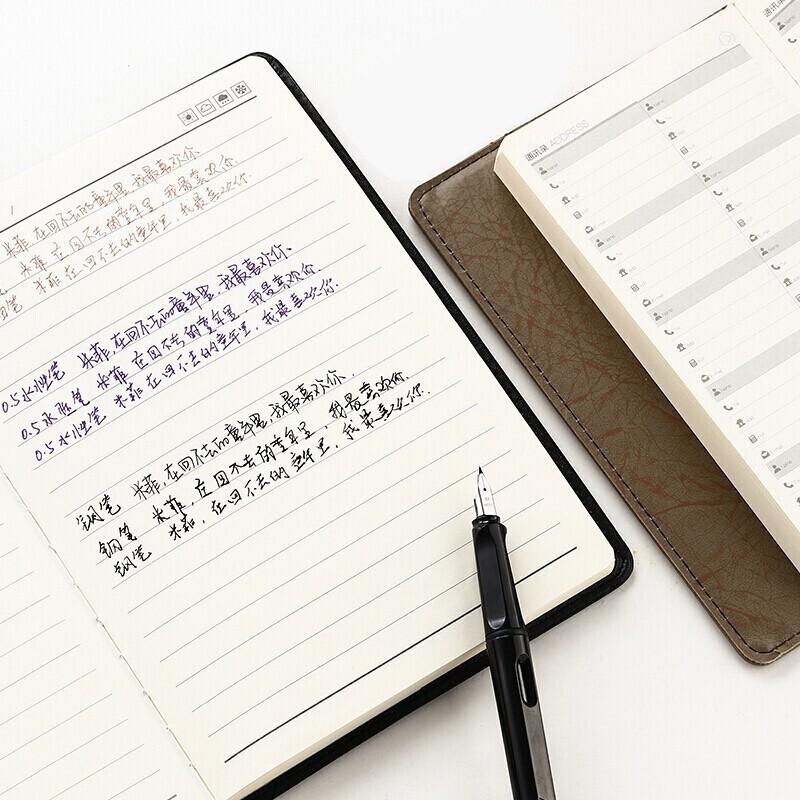 米菲,在回不去的童年里,我最喜欢你.
米菲 在回不去的童年里,我最喜欢你.
笔 米菲 在回不去的童年里,我最喜欢你.
0.5水性笔 米菲,在回不去的童年里,我最喜欢你.
0.5水性笔 米菲 在回不去的童年里,我最喜欢你.
0.5水性笔 米菲 在回不去的童年里,我最喜欢你.
钢笔 米菲,在回不去的童年里,我最喜欢你.
钢笔 米菲,在回不去的童年里,我最喜欢你.
钢笔 米菲,在回不去的童年里,我最喜欢你.
通讯录 ADDRESS
通讯录